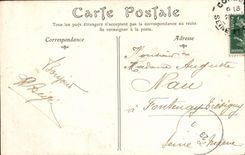 Carte Postale
Tous les pays étrangers n'acceptent pas la correspondance au recto.
Se renseigner à la poste.
Correspondance
Adresse
Monsieur &
Madame Auguste
Nau
à Fontenay-Trésigny
Seine & Marne